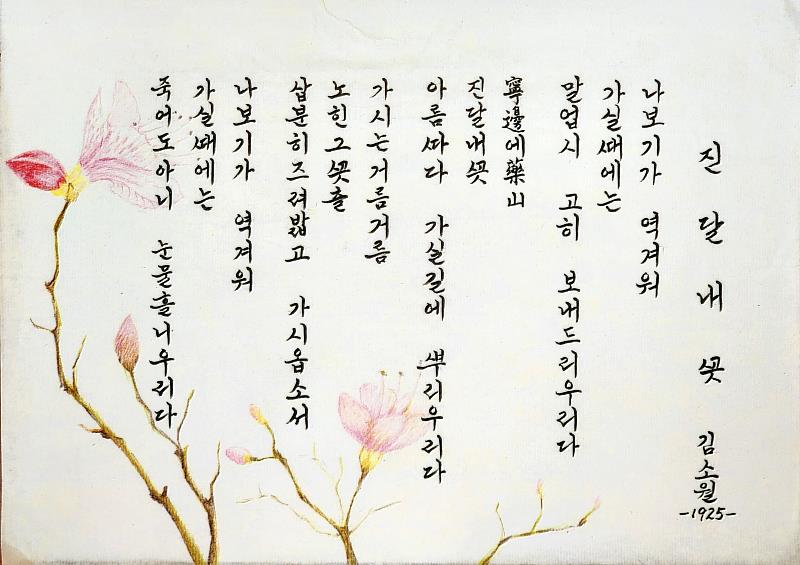 진달내ᄭᅩᆺ 김소월
-1925-
나보기가 역겨워
가실ᄯᅢ에는
말업시 고히 보내드리우리다
寧邊에藥山
진달내ᄭᅩᆺ
아름ᄯᅡ다 가실길에 ᄲᅮ리우리다
가시는거름거름
노힌그ᄭᅩᆺ츨
삽분히즈려밟고 가시옵소서
나보기가 역겨워
가실ᄯᅢ에는
죽어도아니 눈물흘니우리다